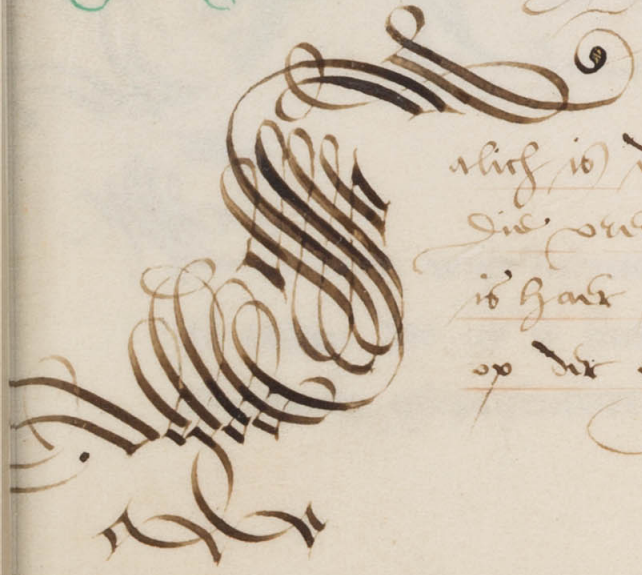 Salich is
die vre
is haer
op der